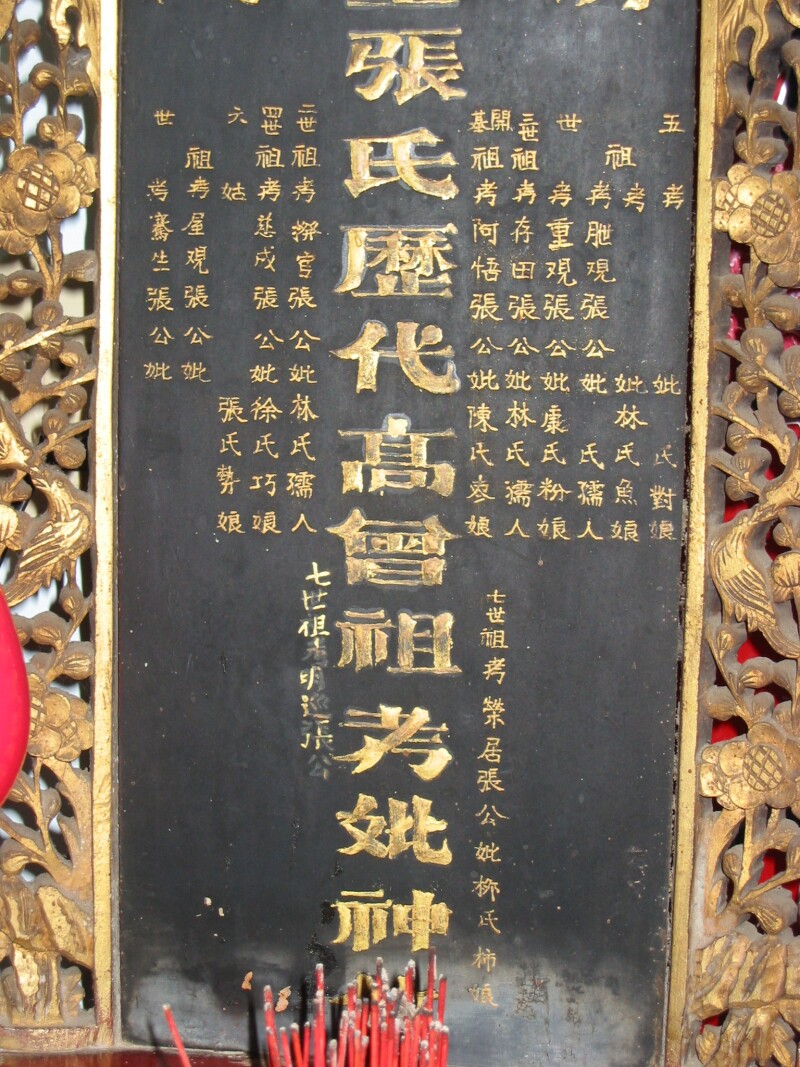 五考妣氏對娘
祖考妣林氏魚娘
考覌張公妣氏孺人
世考重覌張公妣康氏粉娘
三世祖考存田張公妣林氏孺人
開基祖考阿悟張公妣陳氏娘
七世祖考榮居張公妣柳氏柿娘
張氏歷代高曾祖考妣神
二世祖考官張公妣林氏孺人
七世祖考明巡張公
四世祖考慈成張公妣徐氏巧娘
六姑張氏勢娘
祖考屋覌張公妣
世考騫生張公妣